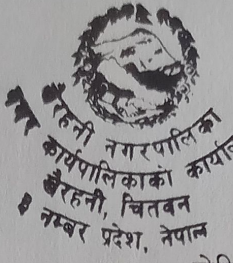 रहनी नगरपालिका
नगर कार्यपालिकाको कार्याल
खैरहनी, चितवन
३ नम्बर प्रदेश, नेपाल